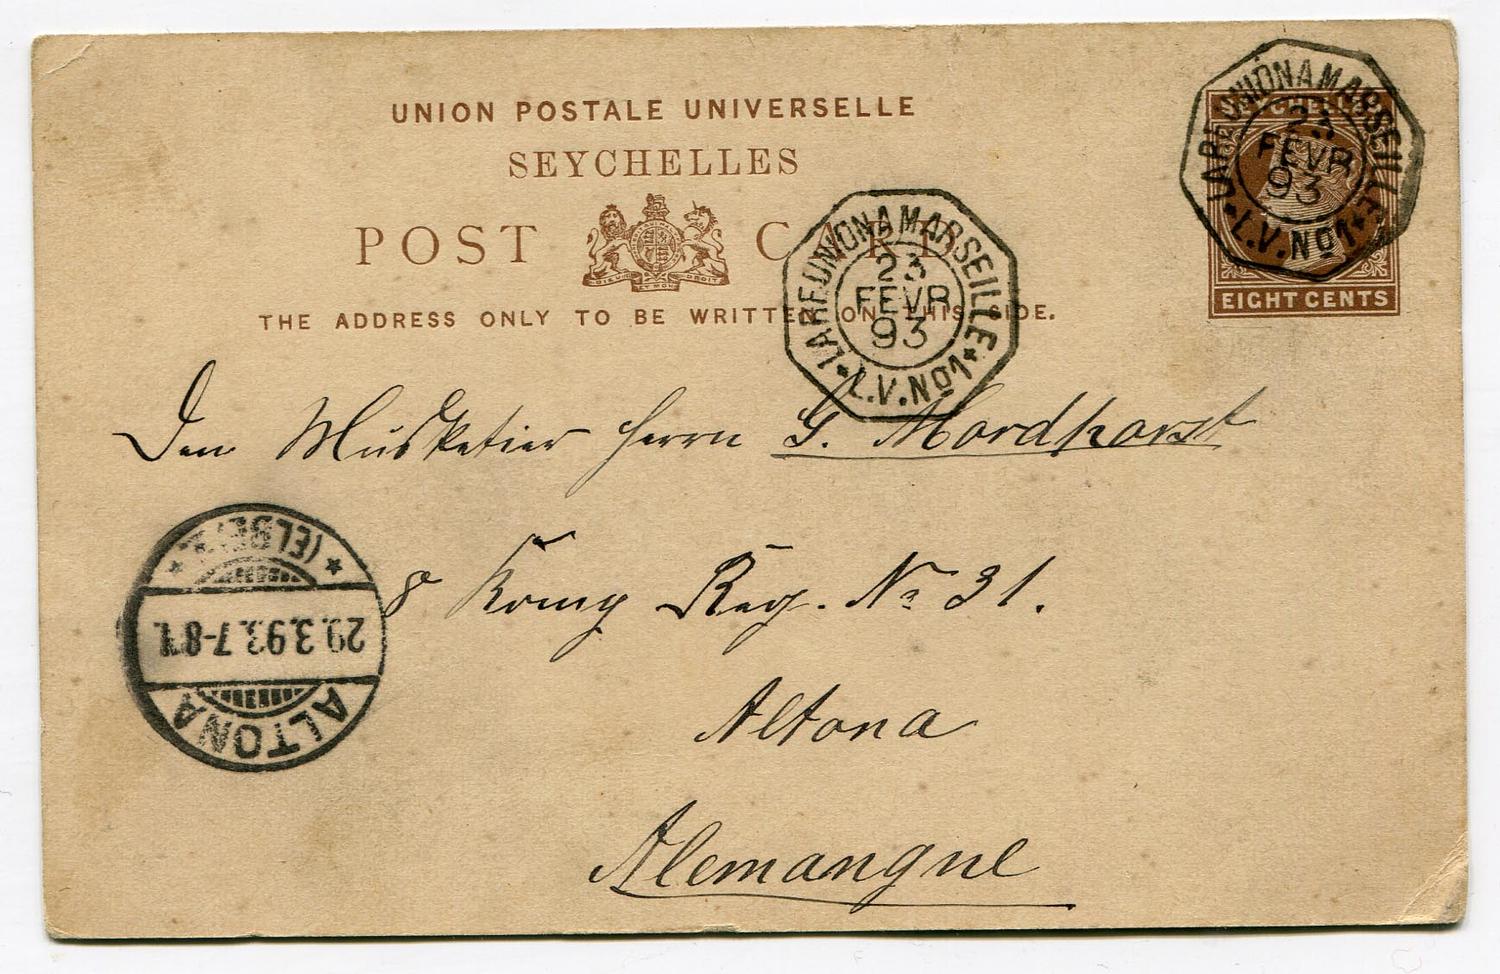 UNION POSTALE UNIVERSELLE
SEYCHELLES
POST CARD
THE ADDRESS ONLY TO BE WRITTEN ON THIS SIDE.
SEYCHELLES
EIGHT CENTS
LA REUNION A MARSEILLE
23
FEVR
93
* L.V.No1 *
LA REUNION A MARSEILLE
23
FEVR
93
* L.V.No1 *
Den Musketier Herrn G. Mordhorst
Reg. No 31.
Altona
Alemangne
ALTONA
29.3.93.7-8
* (ELBE) *